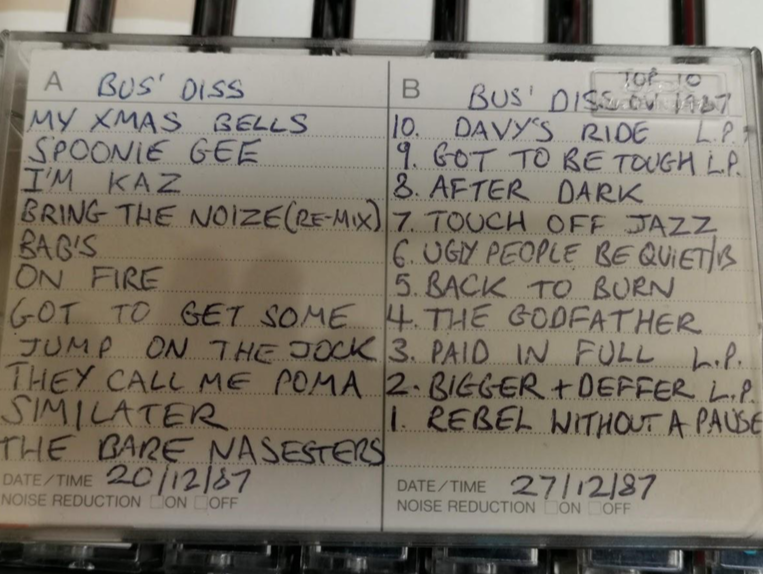 A BUS' DISS
MY XMAS BELLS
SPOONIE GEE
I'M KAZ
BRING THE NOIZE (RE-MIX)
BAB'S
ON FIRE
GOT TO GET SOME
JUMP ON THE JOCK
THEY CALL ME POMA
SIMILATER
THE BARE NASESTERS
DATE/TIME 20/12/87
NOISE REDUCTION ☐ON ☐OFF
B BUS' DISS TOP 10
OV 1987
10. DAVY'S RIDE L.P.
9. GOT TO BE TOUGH L.P.
8. AFTER DARK
7. TOUCH OFF JAZZ
6. UGLY PEOPLE BE QUIET/B
5. BACK TO BURN
4. THE GODFATHER
3. PAID IN FULL L.P.
2. BIGGER + DEFFER L.P.
1. REBEL WITHOUT A PAUSE
DATE/TIME 27/12/87
NOISE REDUCTION ☐ON ☐OFF